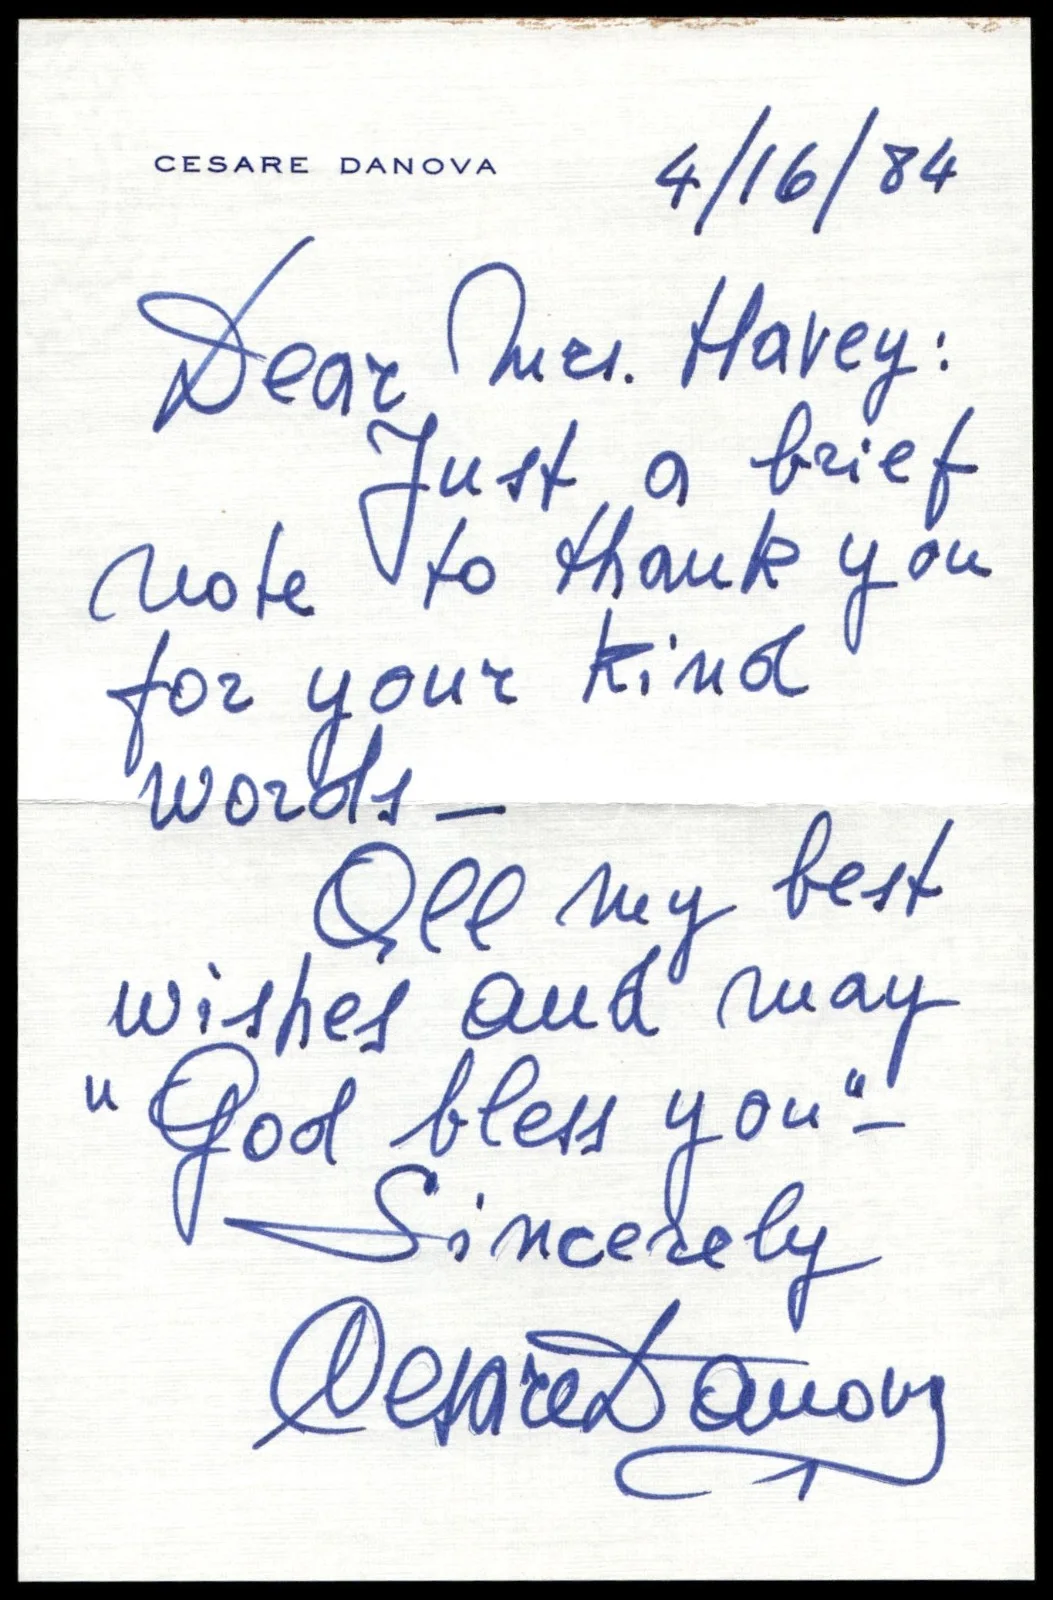 CESARE DANOVA
4/16/84
Dear Mrs. Havey:
Just a brief
note to thank you
for your kind
words —
All my best
wishes and may
"God bless you" —
Sincerely
Cesare Danova